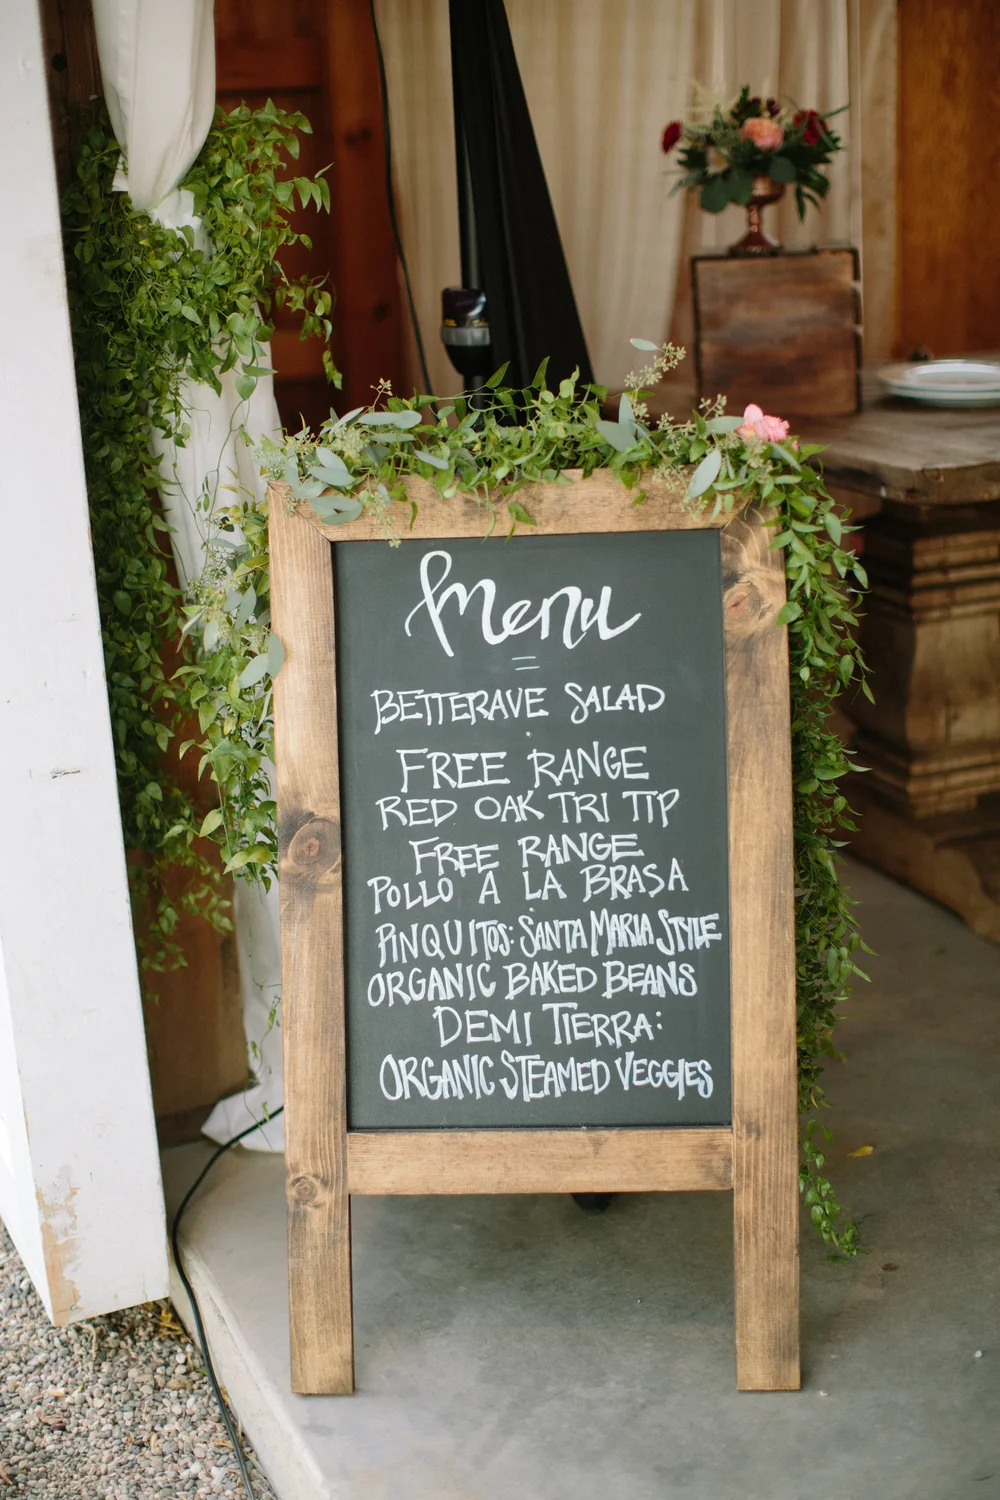 Menu
BETTERAVE SALAD
FREE RANGE
RED OAK TRI TIP
FREE RANGE
POLLO A LA BRASA
PINQUITOS: SANTA MARIA STYLE
ORGANIC BAKED BEANS
DEMI TIERRA:
ORGANIC STEAMED VEGGIES